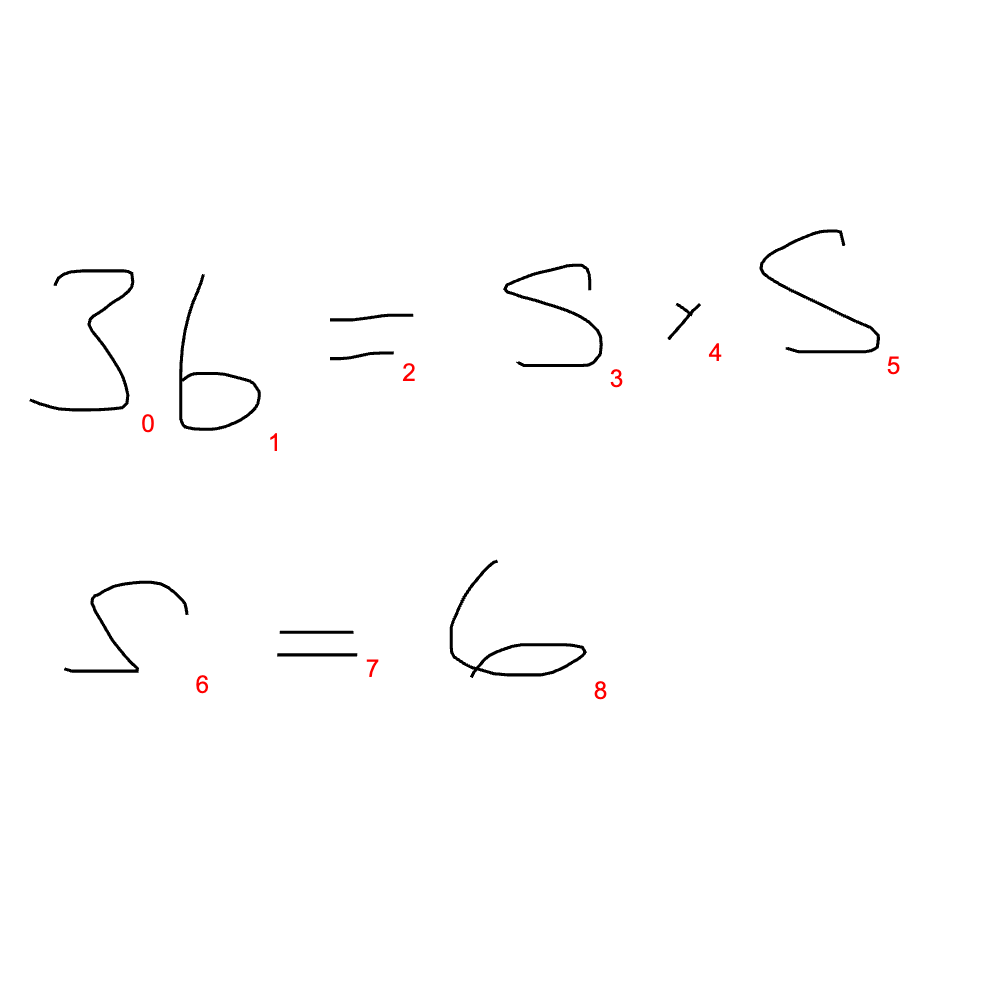 36 = S × S
0 1 2 3 4 5
S = 6
6 7 8